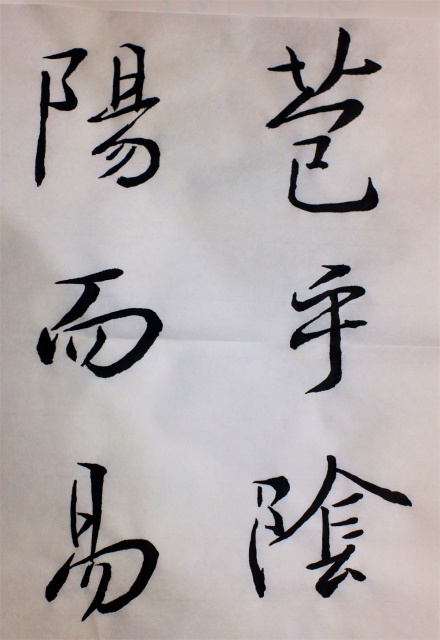 苞乎陰
陽而易